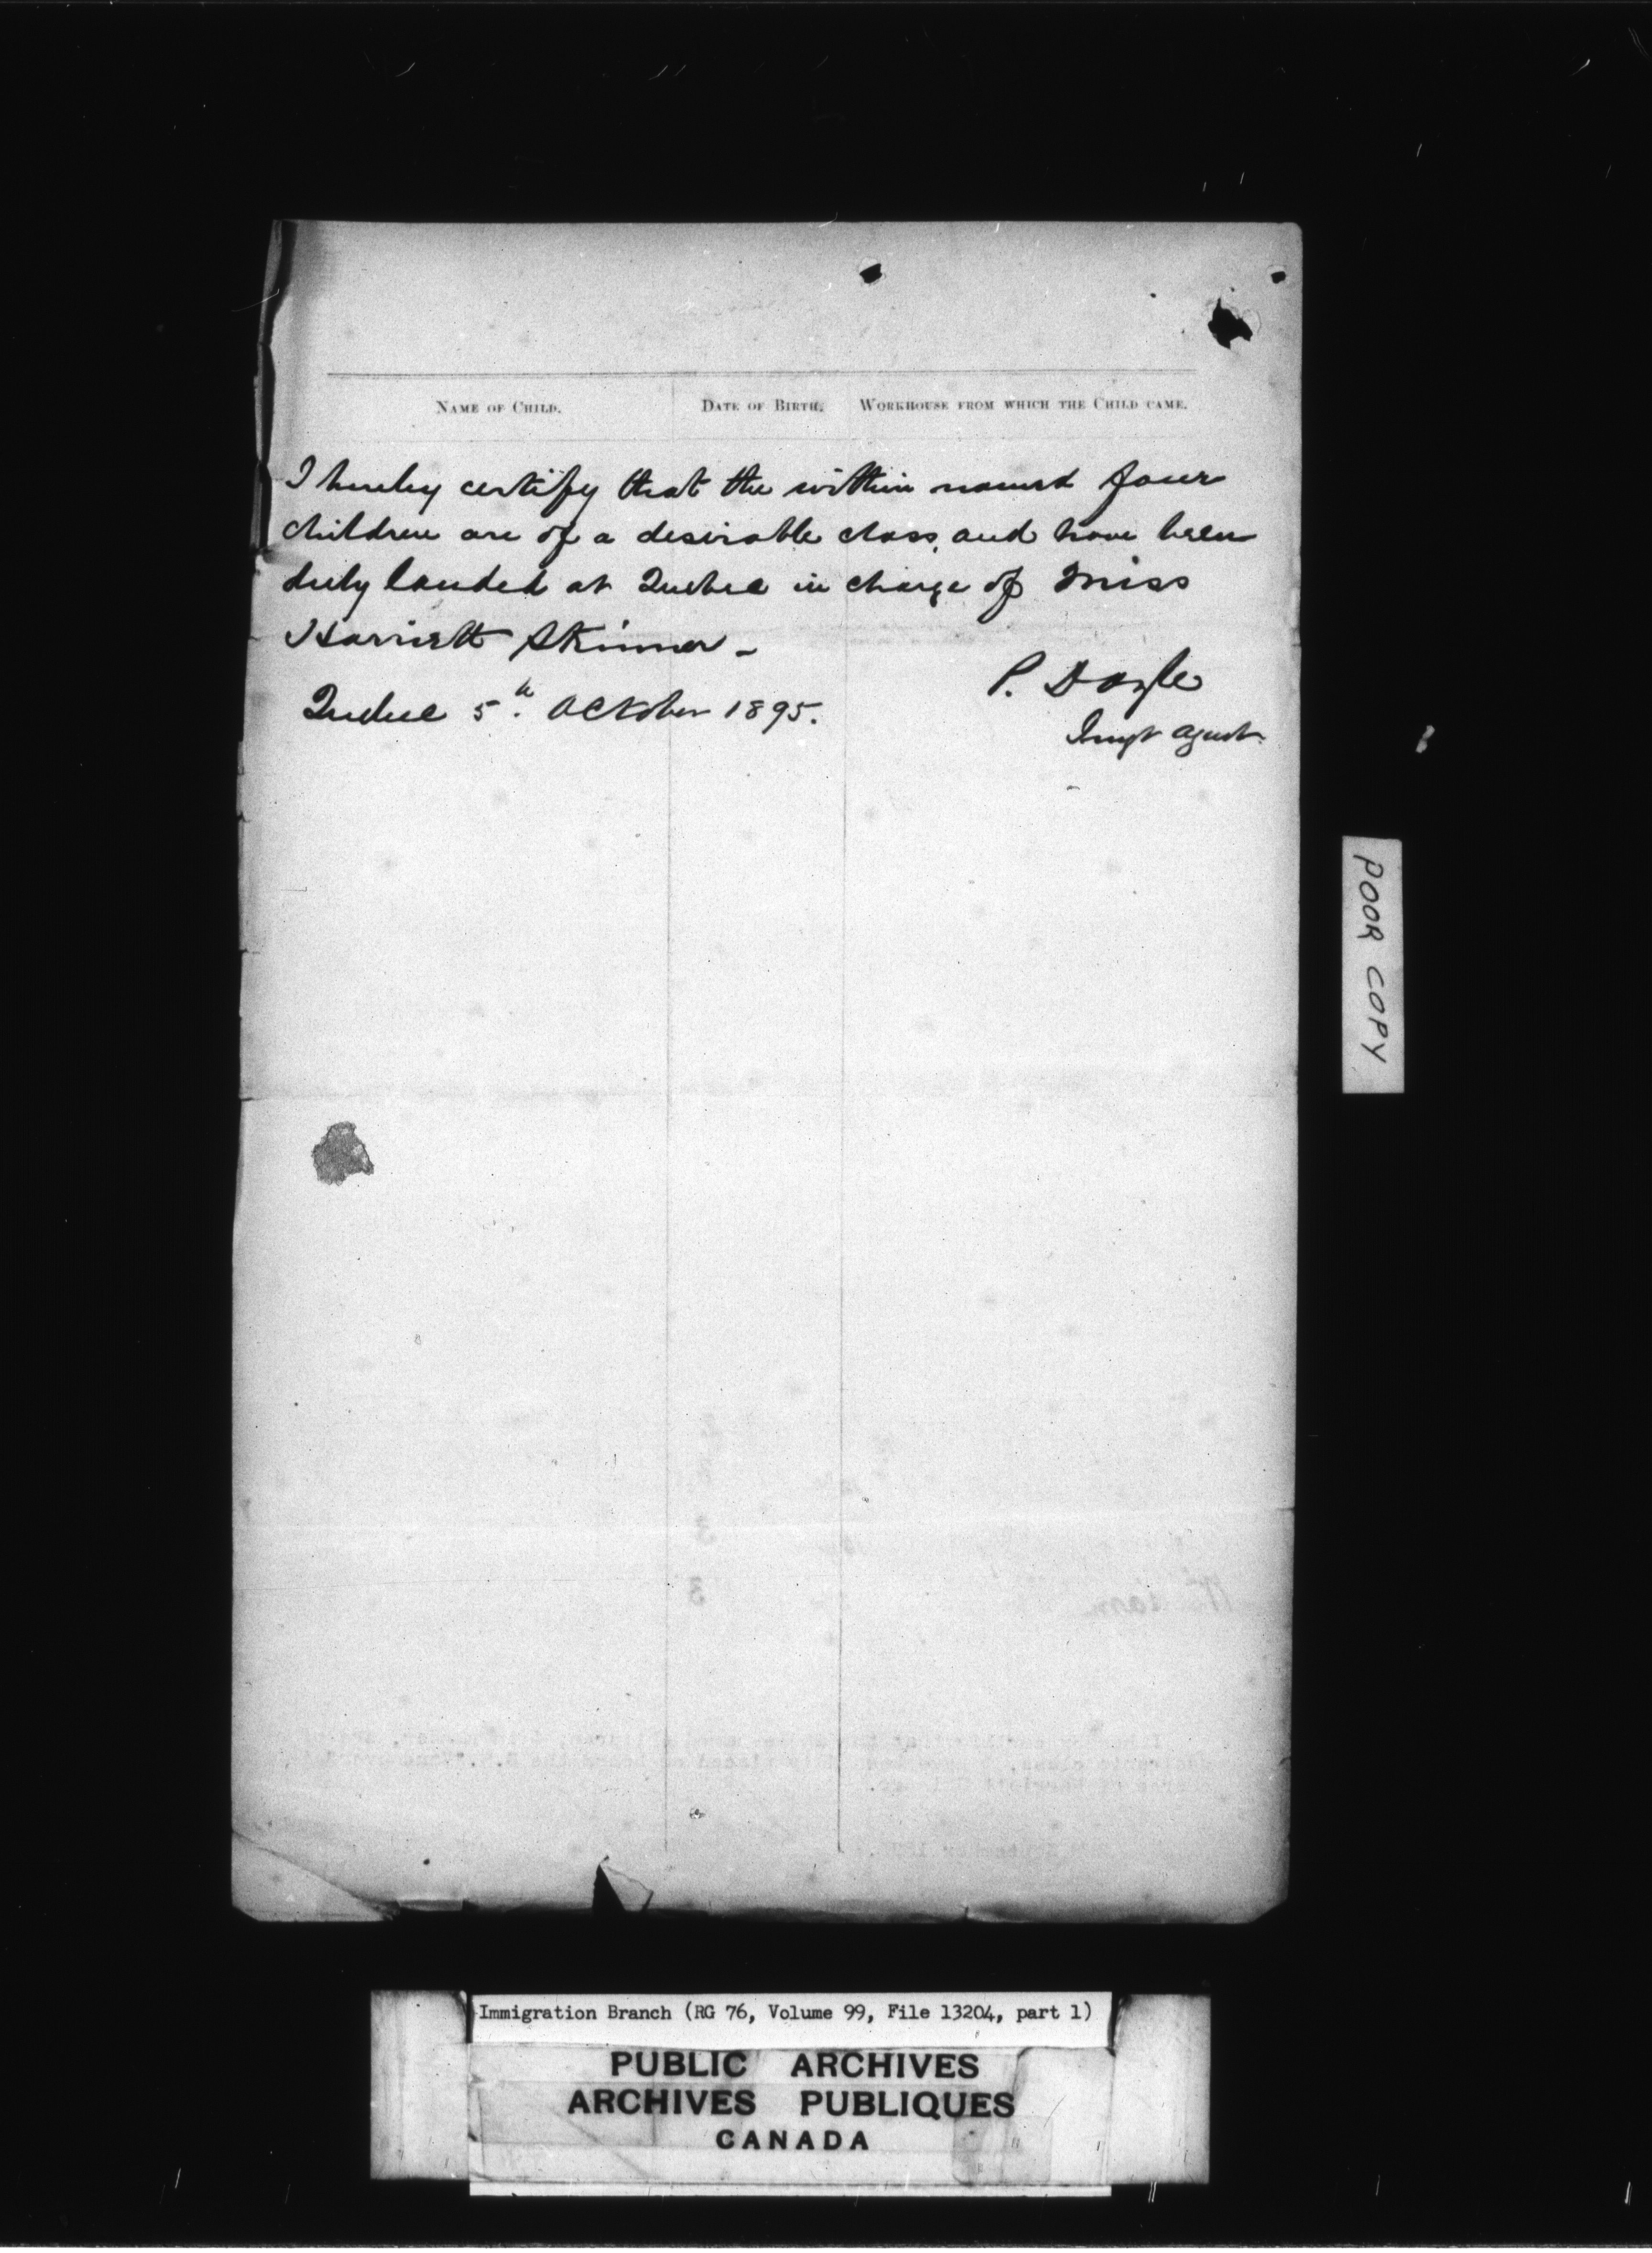 NAME OF CHILD. DATE OF BIRTH. WORKHOUSE FROM WHICH THE CHILD CAME.
I hereby certify that the within named four
children are of a desirable class, and have been
duly landed at Quebec in charge of Miss
Harriett Skinner -
P. Doyle
Quebec 5th. October 1895.
Imgt Agent.
POOR COPY
Immigration Branch (RG 76, Volume 99, File 13204, part 1)
PUBLIC ARCHIVES
ARCHIVES PUBLIQUES
CANADA